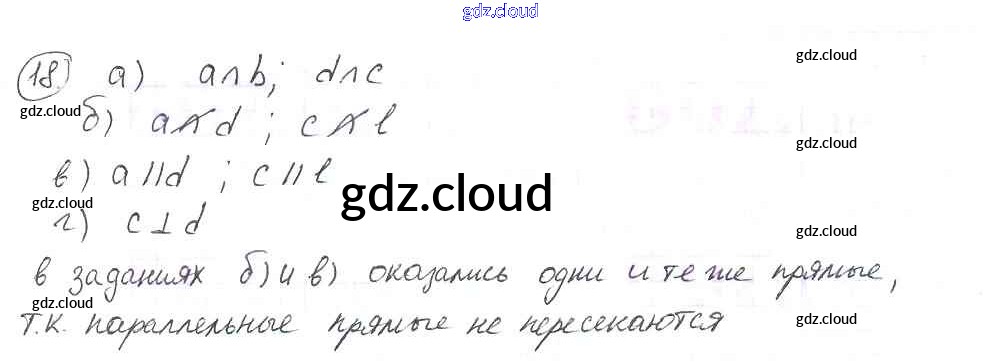 gdz.cloud
gdz.cloud
18. а) a∩b; d∩c
gdz.cloud
б) a∩̸d ; c∩̸l
gdz.cloud
в) a||d ; c||l
gdz.cloud
gdz.cloud
gdz.cloud
г) c⊥d
gdz.cloud
в заданиях б) и в) оказались одни и те же прямые,
gdz.cloud
gdz.cloud
т.к. параллельные прямые не пересекаются
gdz.cloud
gdz.cloud